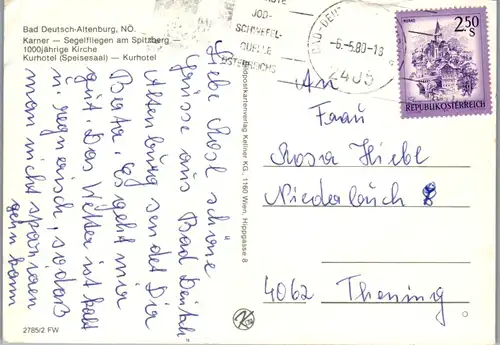 Bad Deutsch-Altenburg, NÖ.
Karner — Segelfliegen am Spitzberg —
1000jährige Kirche
Kurhotel (Speisesaal) — Kurhotel
JOD-
SCHWEFEL-
QUELLE
ÖSTERREICHS
6.-5.80-18
2405
2.50 S
MURAU
REPUBLIK ÖSTERREICH
Liebe Rosl schöne
Grüsse aus Bad Deutsch
Altenburg sendet Dir
Beata. Es geht mir
gut. Das Wetter ist kalt
u. regnerisch, sodaß
man nicht spazieren
gehn kann
postkartenverlag Kellner KG., 1160 Wien, Hippgasse 8
An
Frau
Rosa Hiebl
Niederbuch 8
4062 Thening
2785/2 FW